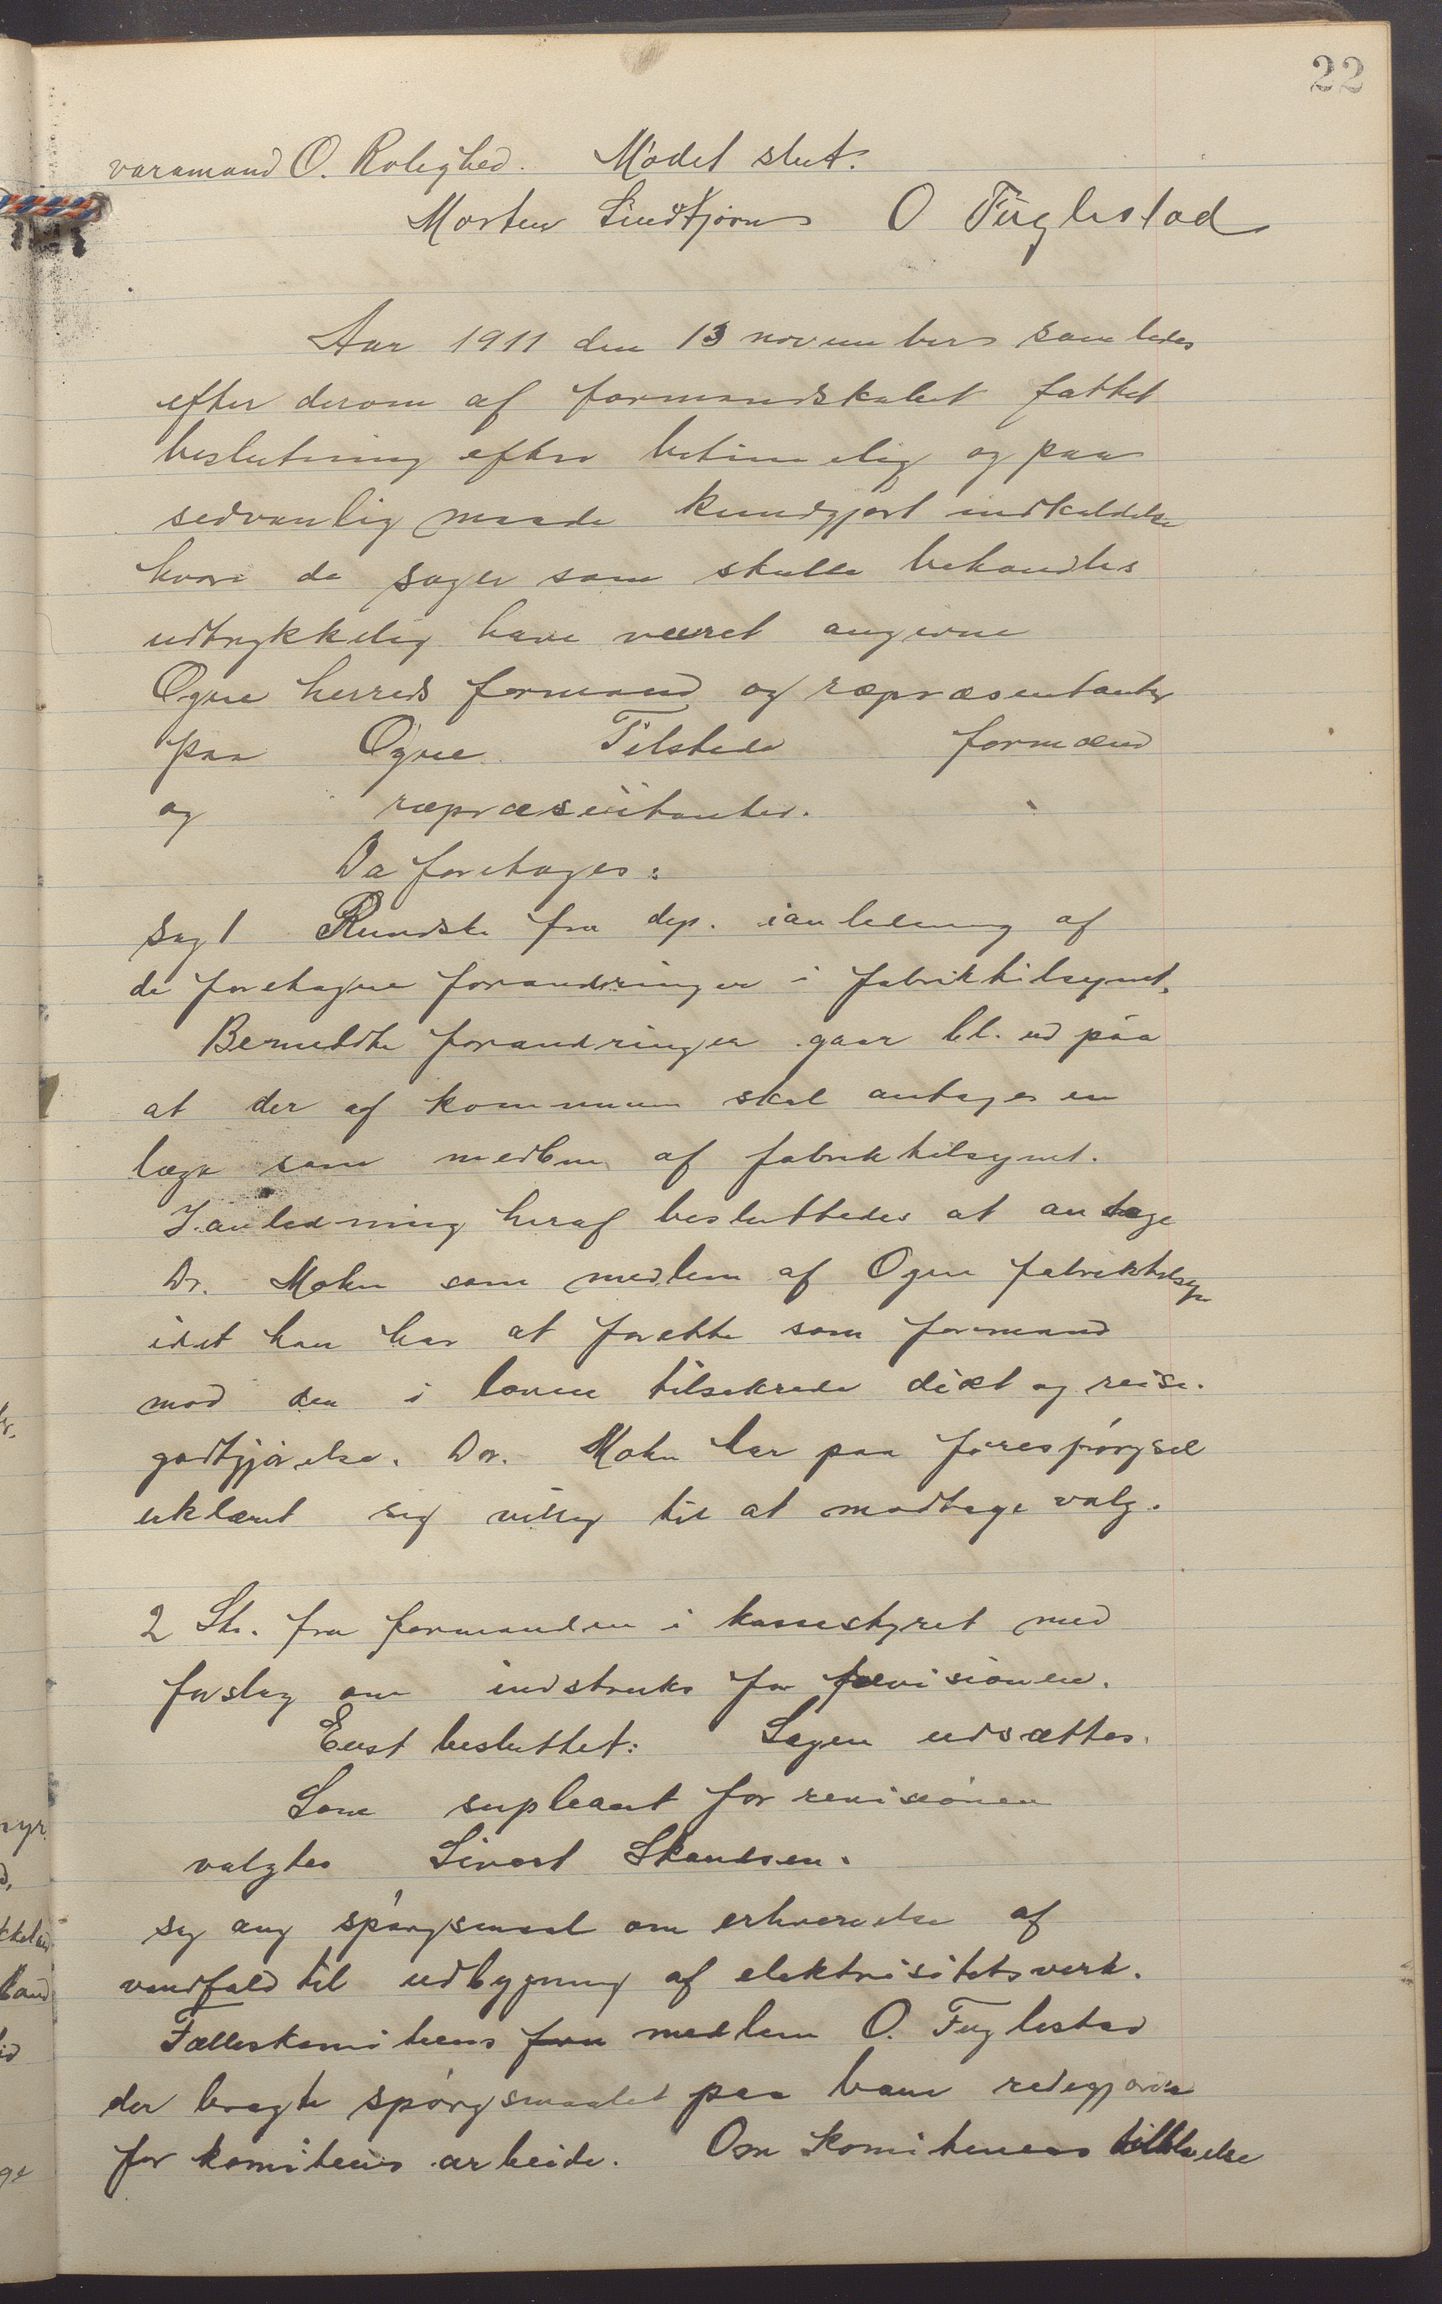 22
varamand O. Rolighed. Mødet slut.
Morten Lindtjørn O Fuglestad
Aar 1911 den 13 november samledes
efter derom af formandskabet fattet
beslutning efter betimelig og paa
sedvanlig maade kundgjort indkaldelse
hvor de sager som skulle behandles
udtrykkelig have været angivne
Ogne herreds formænd og repræsentanter
paa Ogne. Tilstede formænd
og repræsentanter.
Da foretages:
Sag 1 Rundskr fra dep. ianledning af
de foretagne forandringer i fabriktilsynet.
Bemeldte forandringer gaar bl. ud paa
at der af kommunen skal antages en
læge som medlem af fabriktilsynet.
I anledning heraf besluttedes at antage
Dr. Mohn som medlem af Ogne fabriktilsyn
idet han har at forette som formand
mod den i loven tilsikrede diæt og reise-
godtgjørelse. Dr. Mohn har paa forespørgsel
erklæret sig villig til at modtage valg.
2 Skr. fra formanden i kassestyret med
forslag om indstruks for revisionen.
Enst besluttet: Sagen udsættes.
Som supleant for revisionen
valgtes Sivert Skandsen.
Sag ang spørgsmaal om erhvervelse af
vandfald til udbygning af elektrisitetsverk.
Fælleskomiteens medlem O. Fuglestad
der bragte spørgsmaalet paa bane redegjorde
for komiteens arbeide. Om komiteens